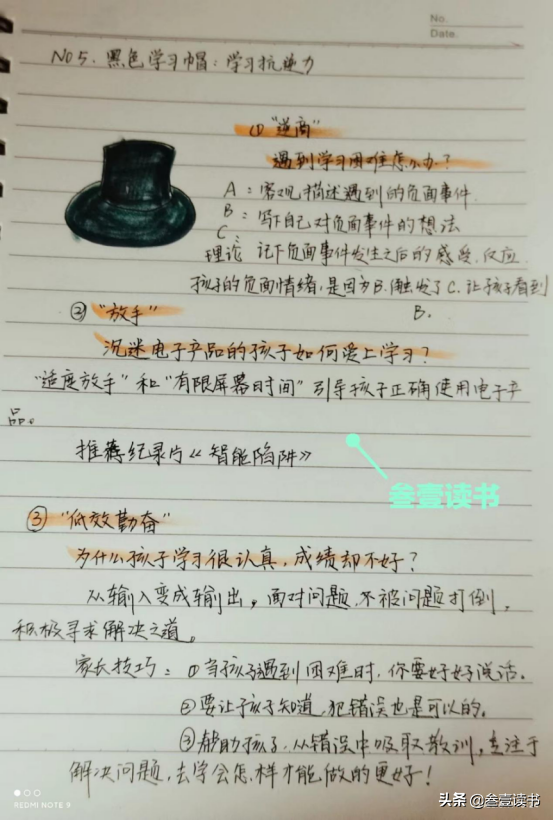 No.
Date.
NO5.黑色学习帽：学习抗逆力
①"逆商"
遇到学习困难怎么办？
A：客观描述遇到的负面事件
B：写下自己对负面事件的想法
C：
理论 记下负面事件发生之后的感受，反应
孩子的负面情绪，是因为B，触发了C.让孩子看到
B.
②"放手"
沉迷电子产品的孩子如何爱上学习？
"适度放手"和"有限屏幕时间"引导孩子正确使用电子产
品。
推荐纪录片《智能陷阱》
叁壹读书
③"低效勤奋"
为什么孩子学习很认真，成绩却不好？
从输入变成输出，面对问题，不被问题打倒，
积极寻求解决之道。
家长技巧：①当孩子遇到困难时，你要好好说话。
②要让孩子知道，犯错误也是可以的。
③帮助孩子，从错误中吸取教训，专注于
解决问题，去学会怎样才能做的更好！
REDMI NOTE 9
头条 @叁壹读书